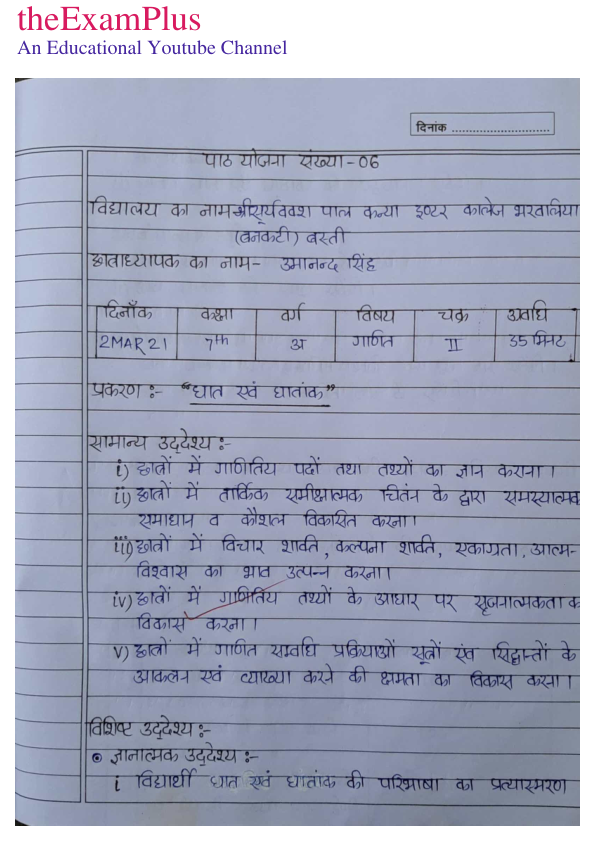 theExamPlus
An Educational Youtube Channel
दिनांक ............................
पाठ योजना संख्या-06
विद्यालय का नाम- श्री सूर्यबक्श पाल कन्या इण्टर कालेज भरवालिया
(बनकटी) बस्ती
छात्राध्यापक का नाम- उमानन्द सिंह
दिनाँक कक्षा वर्ग विषय चक्र अवधि
2MAR21 7th अ गणित II 35 मिनट
प्रकरण :- "घात एवं घातांक"
सामान्य उद्देश्य :-
i) छात्रों में गाणितिय पदों तथा तथ्यों का ज्ञान कराना।
ii) छात्रों में तार्किक समीक्षात्मक चिंतन के द्वारा समस्यात्मक
समाधान व कौशल विकासित करना।
iii) छात्रों में विचार शक्ति, कल्पना शक्ति, एकाग्रता, आत्म-
विश्वास का भाव उत्पन्न करना।
iv) छात्रों में गाणितिय तथ्यों के आधार पर सृजनात्मकता क
विकास करना।
v) छात्रों में गणित सम्बधि प्रक्रियाओं सूत्रों एंव सिद्धान्तों के
आकलन एवं व्याख्या करने की क्षमता का विकास करना।
विशिष्ट उद्देश्य :-
• ज्ञानात्मक उद्देश्य :-
i विद्यार्थी घात एवं घातांक की परिभाषा का प्रत्यास्मरण